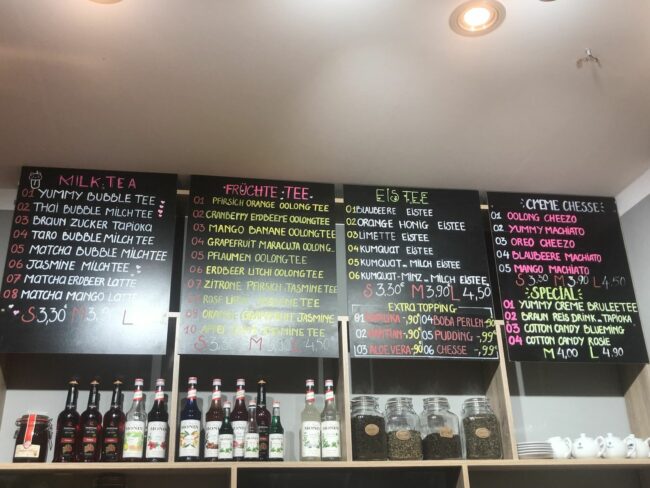 MILK TEA
01 YUMMY BUBBLE TEE
02 THAI BUBBLE MILCHTEE
03 BRAUN ZUCKER TAPIOKA
04 TARO BUBBLE MILCHTEE
05 MATCHA BUBBLE MILCHTEE
06 JASMINE MILCHTEE
07 MATCHA ERDBEER LATTE
08 MATCHA MANGO LATTE
S 3,30 M 3,90 L
FRÜCHTE TEE
01 PFIRSICH ORANGE OOLONG TEE
02 CRANBERRY ERDBEEME OOLONGTEE
03 MANGO BANANE OOLONGTEE
04 GRAPEFRUIT MARACUJA OOLONG
05 PFLAUMEN OOLONGTEE
06 ERDBEER LITCHI OOLONGTEE
07 ZITRONE PFIRSICH JASMINETEE
JASMINE TEE
ORANGE JASMINE
10 JASMINE TEE
S 3,30 M L 4,50
EISTEE
01 BLAUBEERE EISTEE
02 ORANGE HONIG EISTEE
03 LIMETTE EISTEE
04 KUMQUAT EISTEE
05 KUMQUAT MILCH EISTEE
06 KUMQUAT-MINZ MILCH EISTEE
S 3,30 M 3,90 L 4,50
EXTRA TOPPING
01 TAPIOKA -,90 04 BOBA PERLEN -,90
-,90 05 PUDDING -,99
03 ALOE VERA -,90 06 CHESSE -,99
CREME CHESSE
01 OOLONG CHEEZO
02 YUMMY MACHIATO
03 OREO CHEEZO
04 BLAUBEERE MACHIATO
05 MANGO MACHIATO
S 3,30 M 3,90 L 4,50
SPECIAL
01 YUMMY CREME BRULEETEE
02 BRAUN REIS DRINK TAPIOKA
03 COTTON CANDY BLUEMING
04 COTTON CANDY ROSIE
M 4,00 L 4,90
MONIN
MONIN